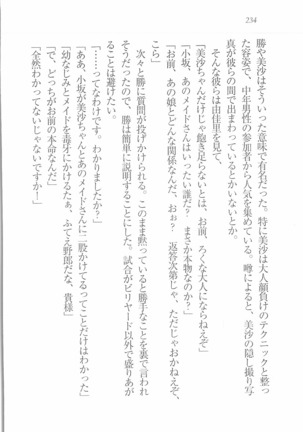 234
勝や美沙はそういった意味で有名だった。特に美沙は大人顔負けのテクニックと整っ
た容姿で、中年男性の参加者から人気を集めている。噂によると、美沙の隠し撮り写
真が彼らの間で出まわっているとかいないとか。
そんな彼らは由佳里を見て、
「美沙ちゃんだけじゃ飽き足らないとは、お前、ろくな大人にならねえぞ」
「小坂、あのメイドさんはいったい誰だ？　まさか本物なのか？」
「お前、あの娘とどんな関係なんだ、おぉ？　返答次第じゃ、ただじゃおかねえぞ、
こら」
次々と勝に質問が投げかけられる。このまま黙っていると勝手なことを裏で言われ
そうだったので、勝は簡単に説明することにした。試合がビリヤード以外で盛りあが
ることは避けたい。
「……ってなわけです。わかりましたか？」
「ああ、小坂が美沙ちゃんとあのメイドさんに二股かけてるってことだけはわかった」
「幼なじみとメイドを両手にかけるたぁ、ふてえ野郎だな、貴様」
「で、どっちがお前の本命なんだ」
「全然わかってないじゃないですかー！」